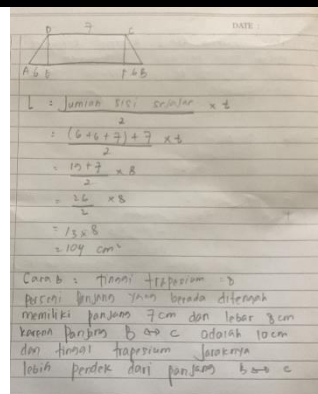 DATE :
7
D C
A 6 O P 6 B
L : Jumlah sisi sejajar x t
2
= (6+6+7)+7 x t
2
= 19+7 x 8
2
= 26 x 8
2
= 13 x 8
= 104 cm²
Cara B : tinggi trapesium = 8
Persegi panjang yang berada ditengah
memiliki panjang 7 cm dan lebar 8 cm
karena panjang B ↔ C adalah 10 cm
dan tinggi trapesium jaraknya
lebih pendek dari panjang B ↔ C